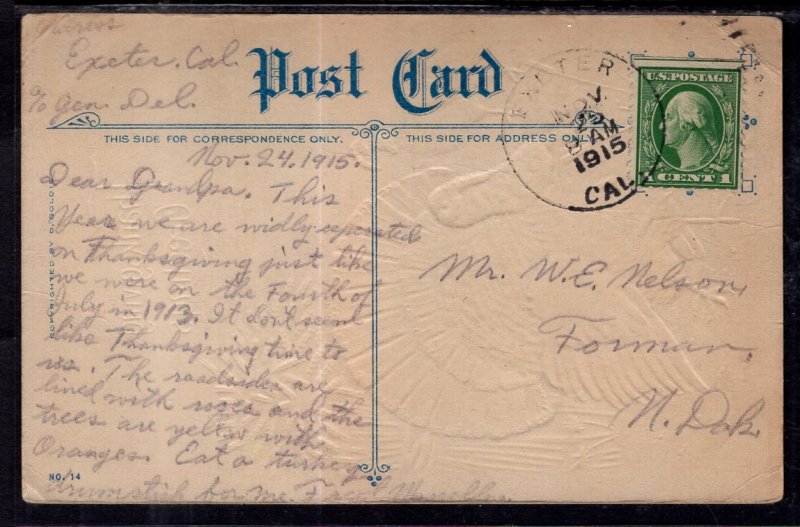 Address
Exeter, Cal.
℅ Gen. Del.
Post Card
THIS SIDE FOR CORRESPONDENCE ONLY.
THIS SIDE FOR ADDRESS ONLY
EXETER
NOV.
AM
1915
CAL.
U.S. POSTAGE
1 CENT 1
Nov. 24, 1915.
Dear Grandpa. This
Year we are widly seperated
on Thanksgiving just like
we were on the Fourth of
July in 1913. It don't seem
like Thanksgiving time to
us. The roadsides are
lined with roses and the
trees are yellow with
Oranges. Eat a turkey
drumstick for me.
Mr. W. E. Nelson,
Forman,
N. Dak.
COPYRIGHTED BY
NO. 14